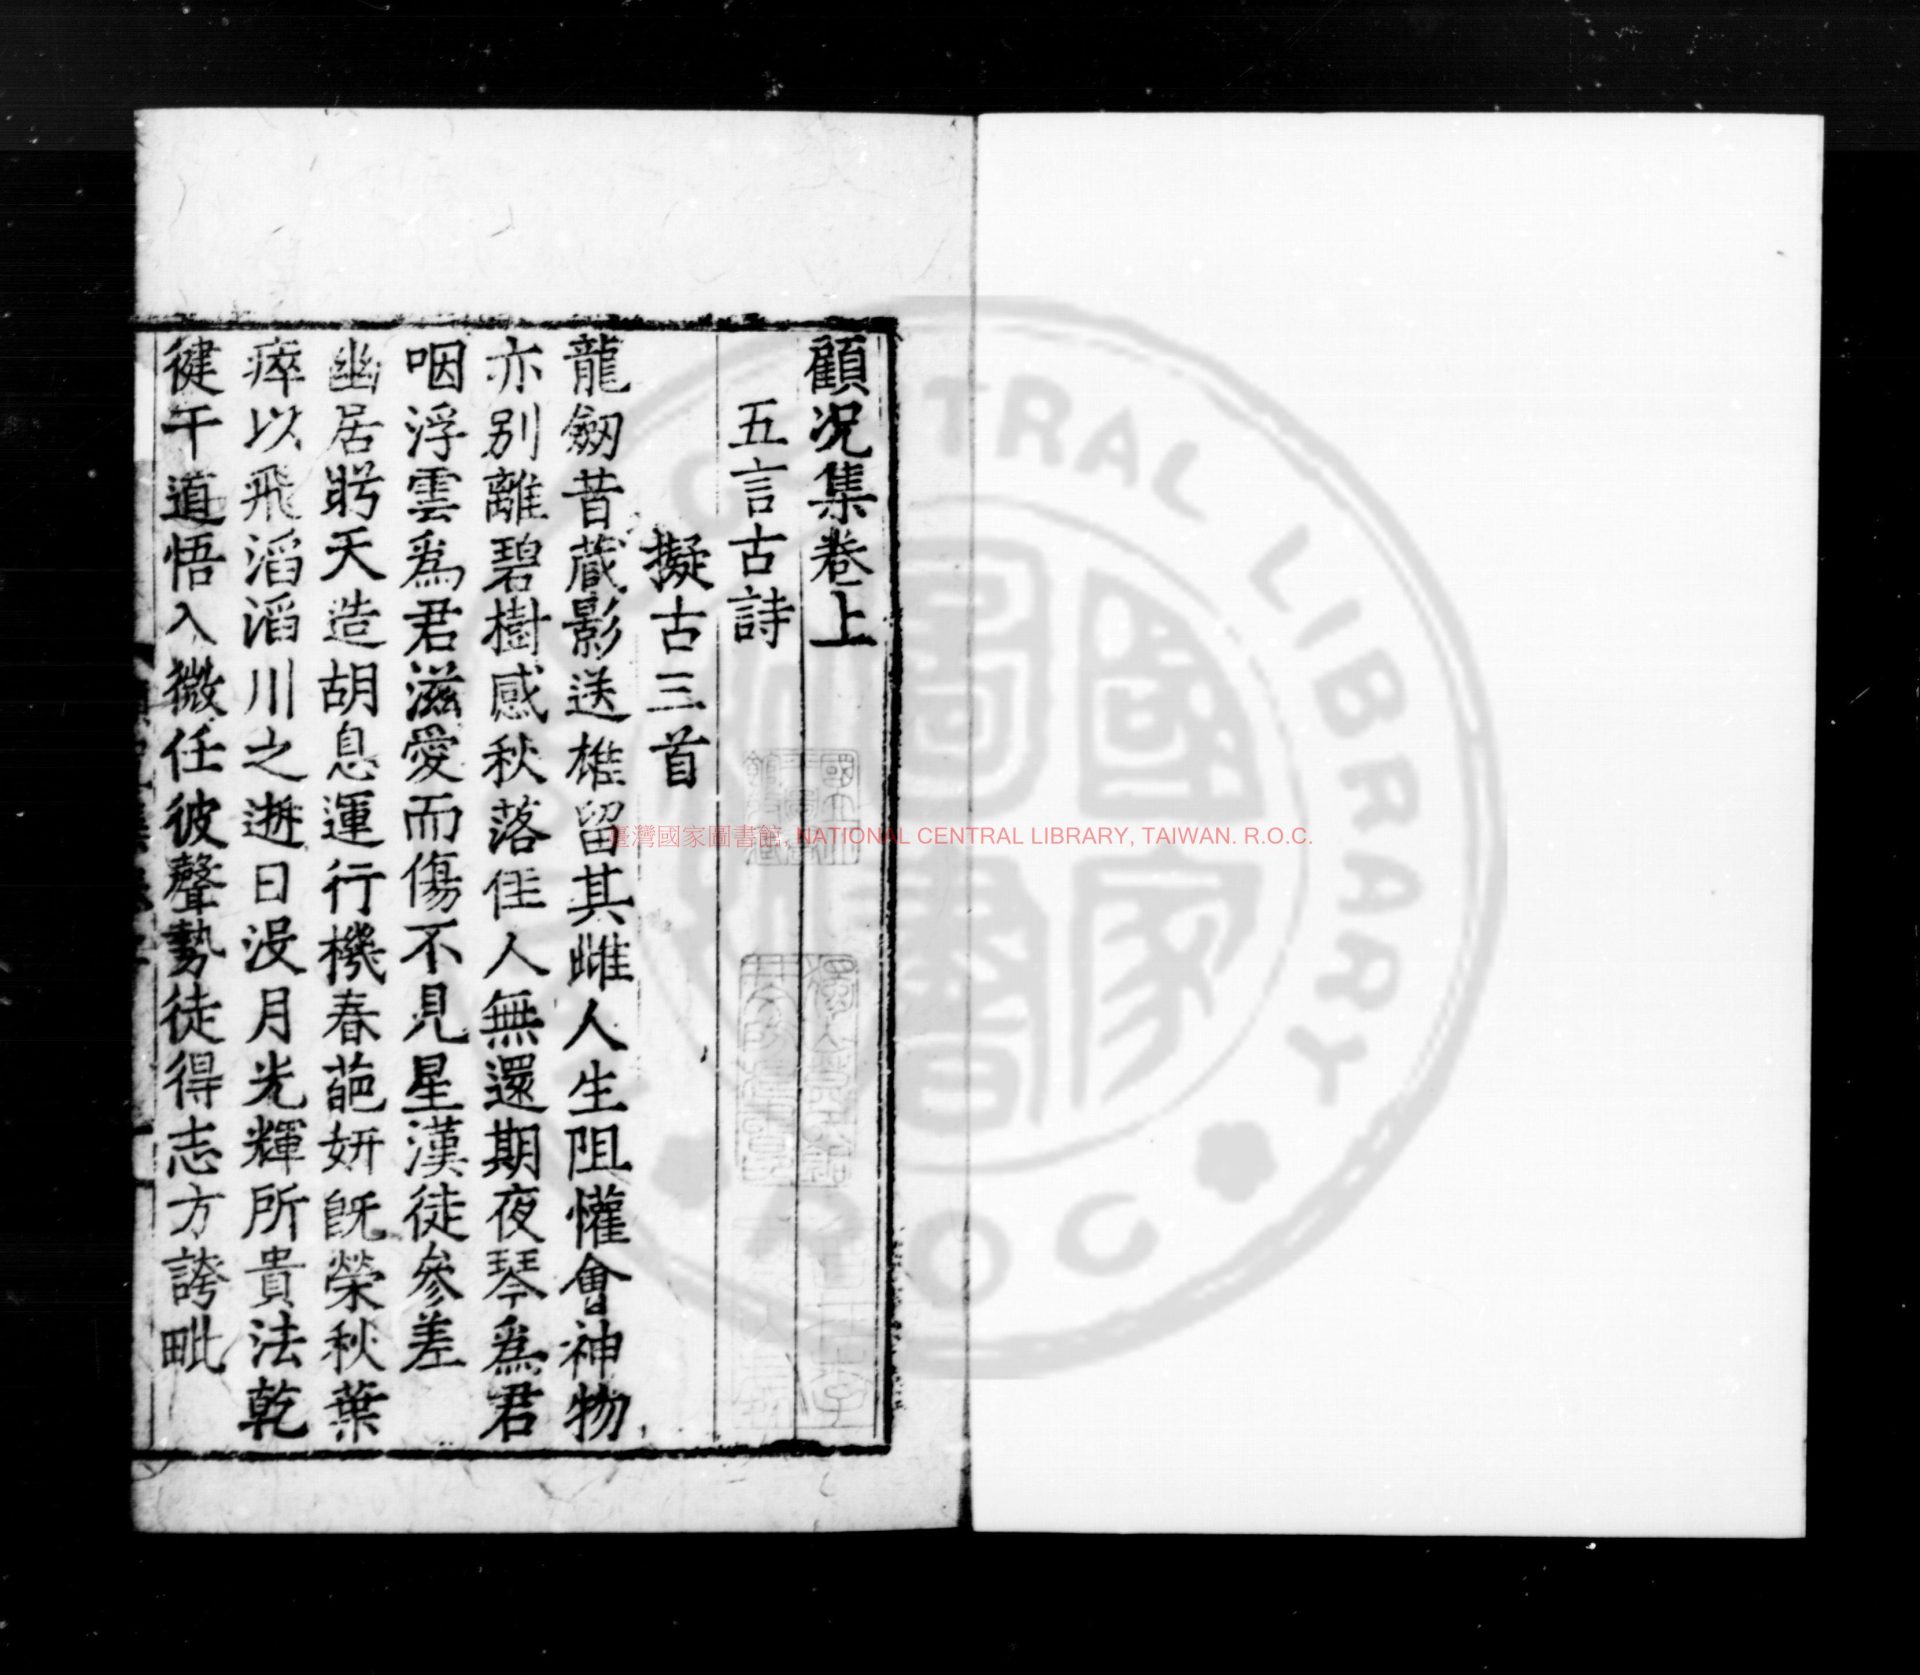 顧况集卷上
五言古詩
擬古三首
龍劒昔藏影送雄留其雌人生阻懽會神物
亦别離碧樹感秋落佳人無還期夜琴爲君
咽浮雲爲君滋愛而傷不見星漢徒參差
幽居眄天造胡息運行機春葩妍旣榮秋葉
瘁以飛滔滔川之逝日没月光輝所貴法乾
健干道悟入微任彼聲勢徒得志方誇毗
臺灣國家圖書館, NATIONAL CENTRAL LIBRARY, TAIWAN. R.O.C.
CENTRAL LIBRARY
國家圖書
ROC